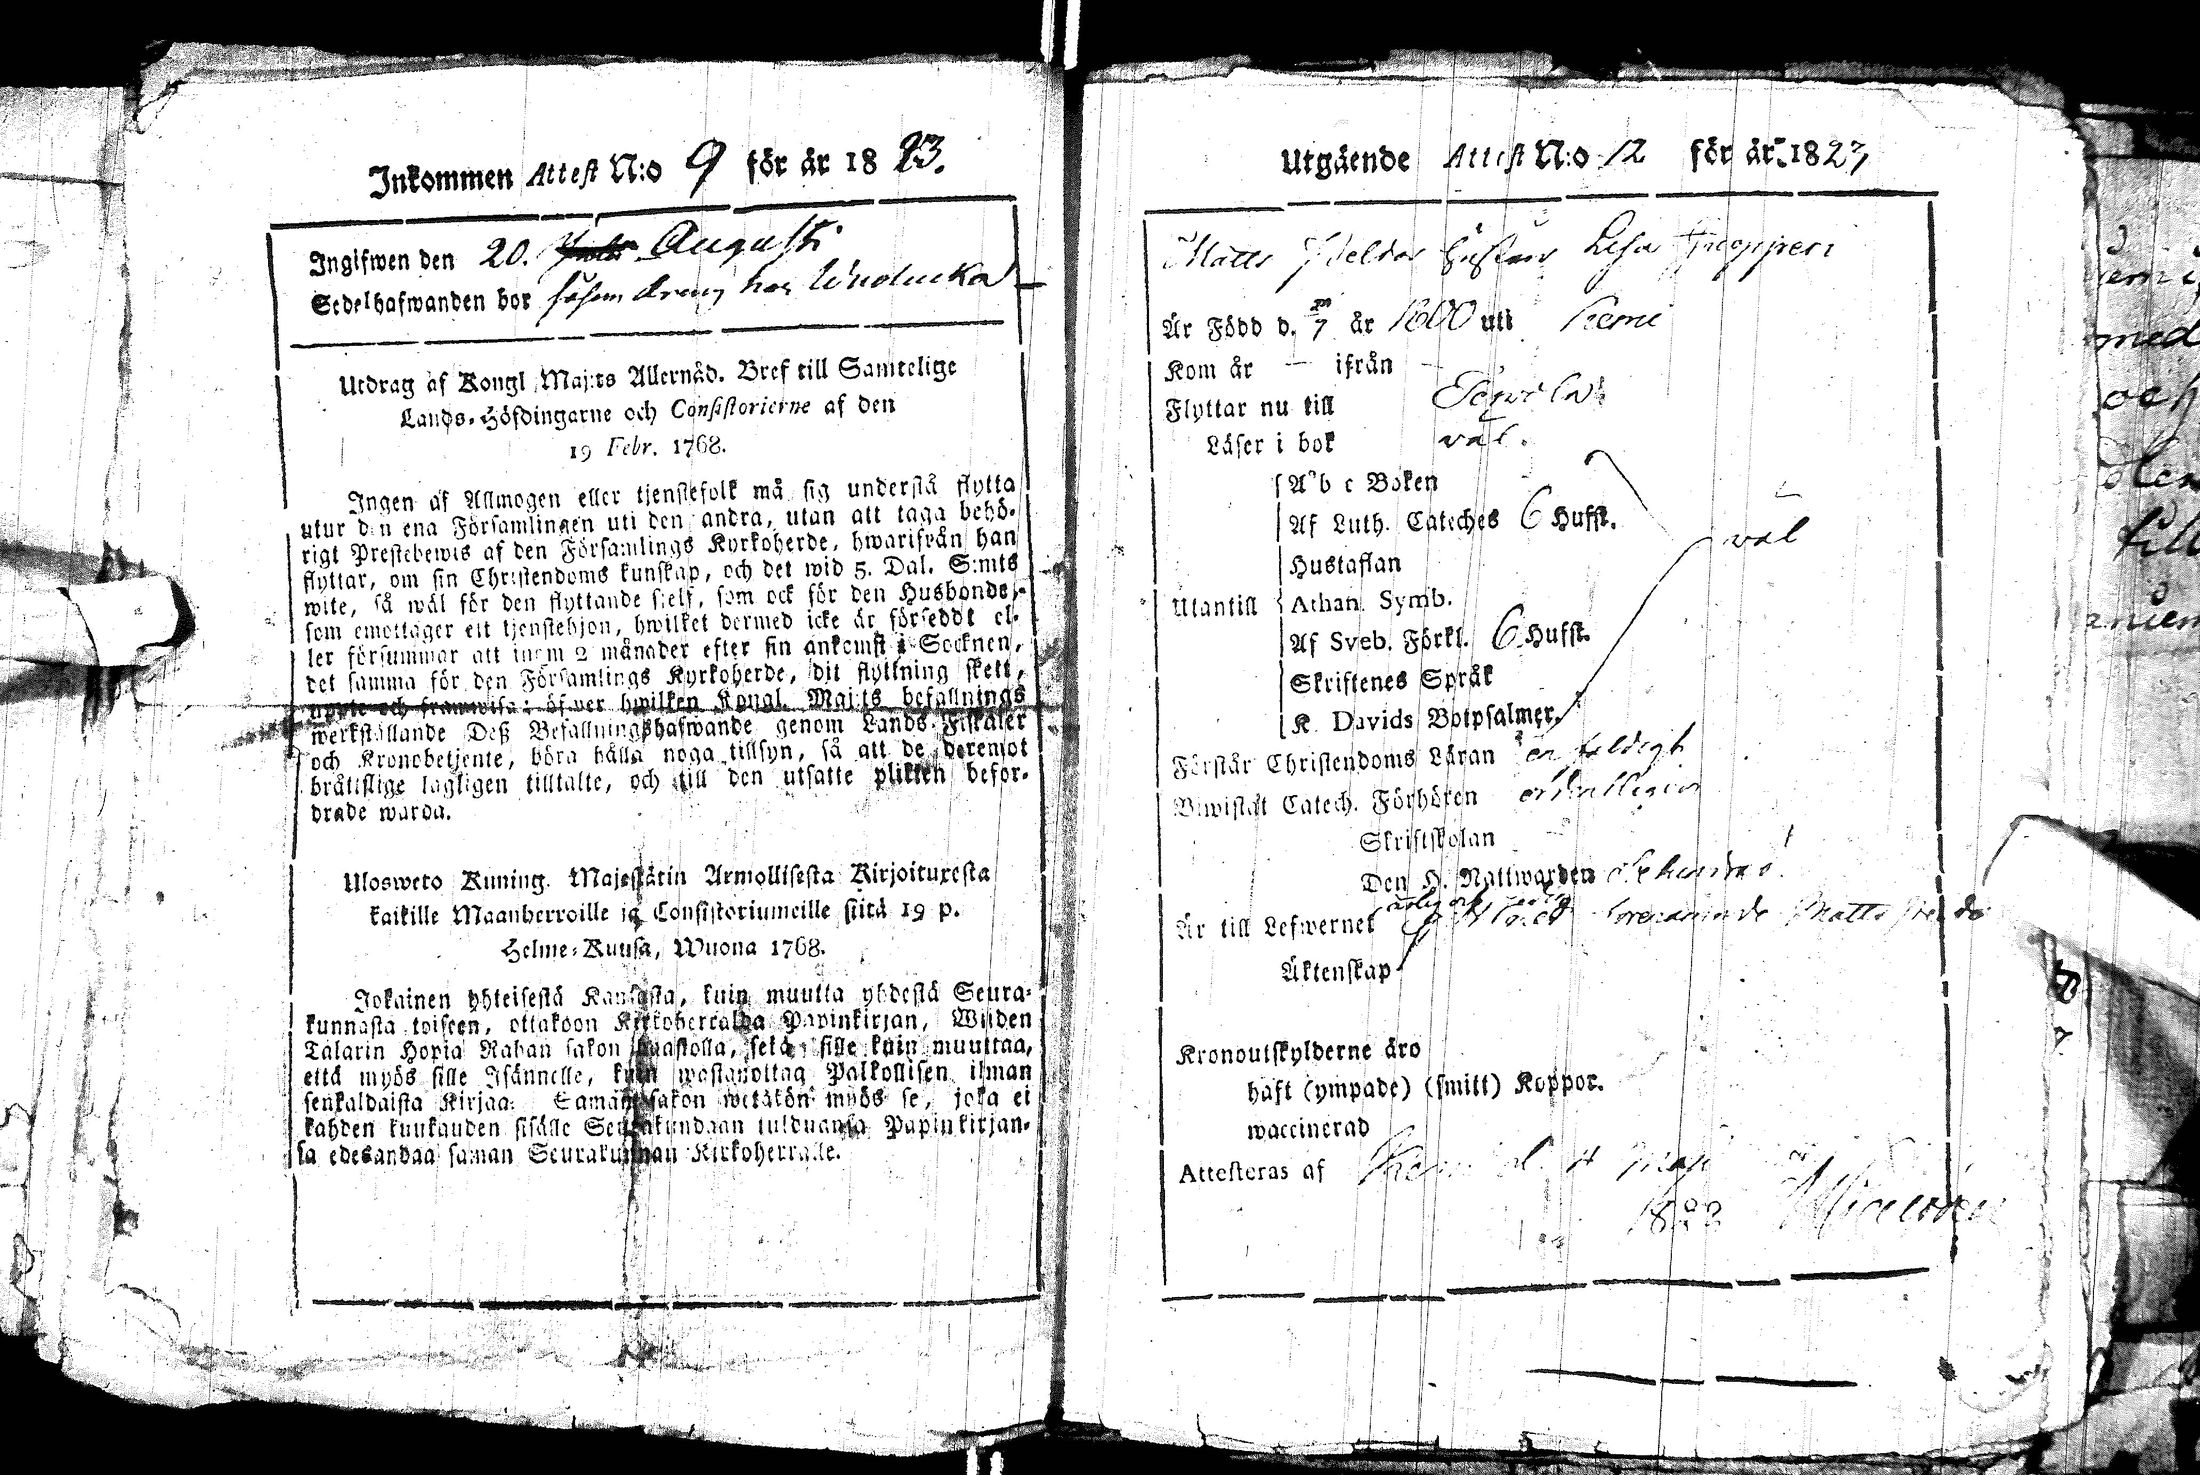 Inkommen Attest N:o 9 för år 1823.
Ingifwen den 20. Augusti
Sedelhafwanden bor såsom dreng hos
Utdrag af Kongl Maj:ts Allernåd. Bref till Samtelige
Lands-Höfdingarne och Consistorierne af den
19 Febr. 1768.
Ingen af Allmogen eller tjenstefolk må sig understå flytta
utur den ena Församlingen uti den andra, utan att taga behö-
rigt Prestebewis af den Församlings Kyrkoherde, hwarifrån han
flyttar, om sin Christendoms kunskap, och det wid 5. Dal. S:mts
wite, så wäl för den flyttande sjelf, som ock för den Husbonde,
som emottager ett tjenstehjon, hwilket dermed icke är förseddt el-
ler försummar att inom 2 månader efter sin ankomst i Socknen,
det samma för den Församlings Kyrkoherde, dit flyttning skett,
upte och framwisa: öfwer hwilken Kongl. Maj:ts befallnings
werkställande Deß Befallningshafwande genom Lands-Fiskaler
och Kronobetjente, böra hålla noga tillsyn, så att de deremot
bråtislige lagligen tilltalte, och till den utsatte plikten befor-
drade warda.
Ulosweto Kuning. Majestätin Armollisesta Kirjoituxesta
kaikille Maanherroille ja Consistoriumeille siitä 19 p.
Helme-Kuusa, Wuona 1768.
Jokainen yhteisestä Kansasta, kuin muutta yhdestä Seura-
kunnasta toiseen, ottakoon Kirkoherralda Papinkirjan, Wijden
Talarin Hopia Rahan sakon haastolla, sekä sille kuin muuttaa,
että myös sille Isännelle, kuin wastanottaa Palkollisen ilman
senkaldaista Kirjaa: Saman sakon wetäkön myös se, joka ei
kahden kuukauden sisälle Seurakundaan tulduansa Papinkirjan-
sa edesandaa saman Seurakunnan Kirkoherralle.
Utgående Attest N:o 12 för år 1823
Matts
Är Född d. 7 år 1800 uti Kemi
Kom år — ifrån —
Flyttar nu till
Läser i bok väl.
A b c Boken
Af Luth. Cateches 6 Hufst.
väl
Hustaflan
Utantill Athan. Symb.
Af Sveb. Förkl. 6 Hufst.
Skriftenes Språk
K. Davids Botpsalmer,
Förstår Christendoms Läran enfeldigt
Biwistat Catech. Förhören ordentligen
Skriftskolan
Den H. Nattwarden
Är till Lefwernet
Äktenskap
Kronoutskylderne äro
haft (ympade) (smitt) Koppor.
waccinerad
Attesteras af Kemi d. 4 Maji